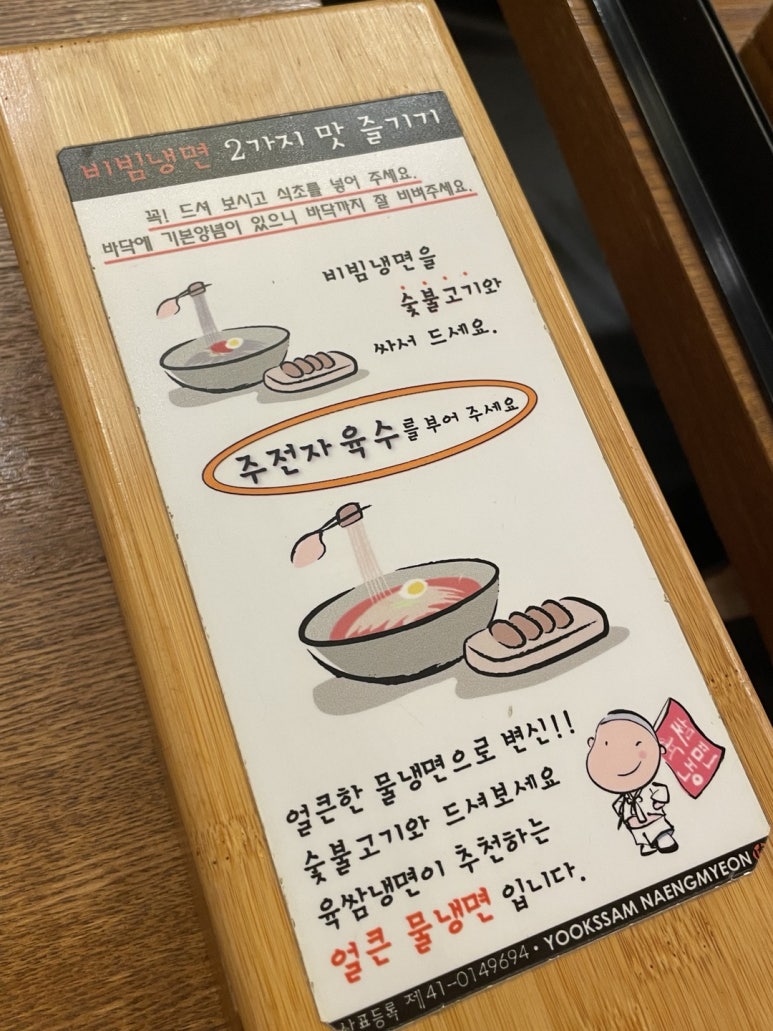 비빔냉면 2가지 맛 즐기기
꼭! 드셔 보시고 식초를 넣어 주세요.
바닥에 기본양념이 있으니 바닥까지 잘 비벼주세요.
비빔냉면을
숯불고기와
싸서 드세요.
주전자 육수를 부어 주세요
얼큰한 물냉면으로 변신!!
숯불고기와 드셔보세요
육쌈냉면이 추천하는
얼큰 물냉면 입니다.
육쌈
냉면
상표등록 제41-0149694 · YOOKSSAM NAENGMYEON